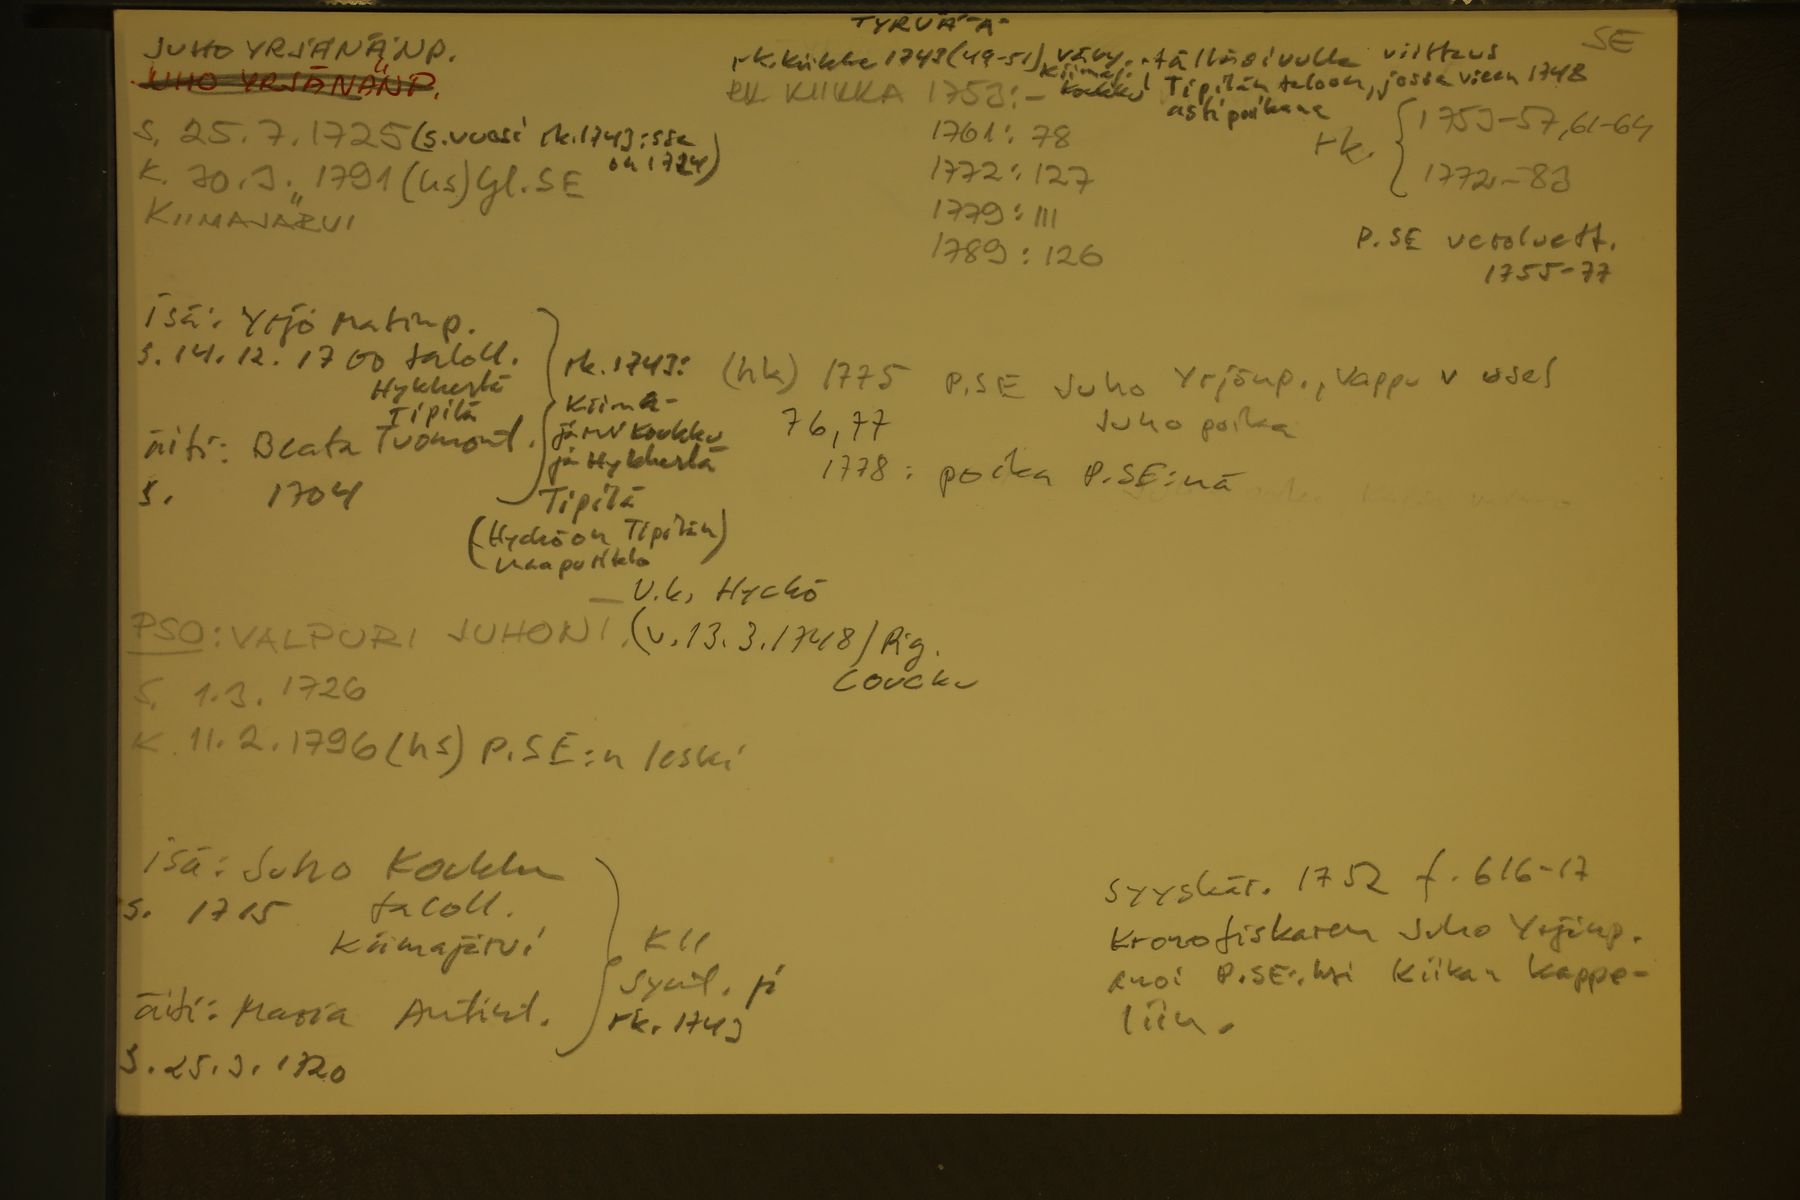 TYRVÄÄ
SE
JUHO YRJÄNÄNP.
JUHO YRJÄNÄNP.
s. 25.7.1725 (s.vuosi rk.1743:ssa on 1724)
K. 70.3. 1791 (hs) Gl. SE
KIIMAJÄRVI
rk. Kiikka 1743 (49-51) vävy. tällä sivulla viittaus
Kiimaj. Koukku Tipilän taloon, jossa vielä 1748
asti poikana
RK KIIKKA 1753: -
1761: 78
1772: 127
1779: 111
1789: 126
rk. { 1753-57, 61-64
1772-83
P.SE veroluett.
1755-77
isä: Yrjö Matinp.
s. 14.12. 1700 taloll.
Hykkerstä
Tipilä
äiti: Beata Tuomont.
s. 1704
rk. 1743:
Kiima-
järvi Koukku
ja Hykkerstä
Tipilä
(Hyckö on Tipilän
naapuritalo)
(hk) 1775 P.SE Juho Yrjönp., Vappu v
Juho poika
76, 77
1778: poika P.SE:nä
— V.k. Hyckö
PSO: VALPURI JUHONT. (v. 13.3.1748) Pig.
Coucku
S. 1.3. 1726
K. 11.2.1796 (hs) P.SE:n leski
isä: Juho Koukku
s. 1715 taloll.
Kiimajärvi
äiti: Maria Antint.
s. 25.3. 1720
KII
synt. ja
rk. 1743
syyskär. 1752 f. 616-17
Kronofiskaren Juho Yrjönp.
anoi P.SE:ksi Kiikan kappe-
liin.